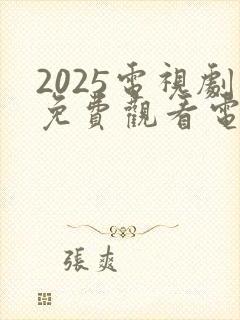 2025電視劇
免費觀看電
張爽